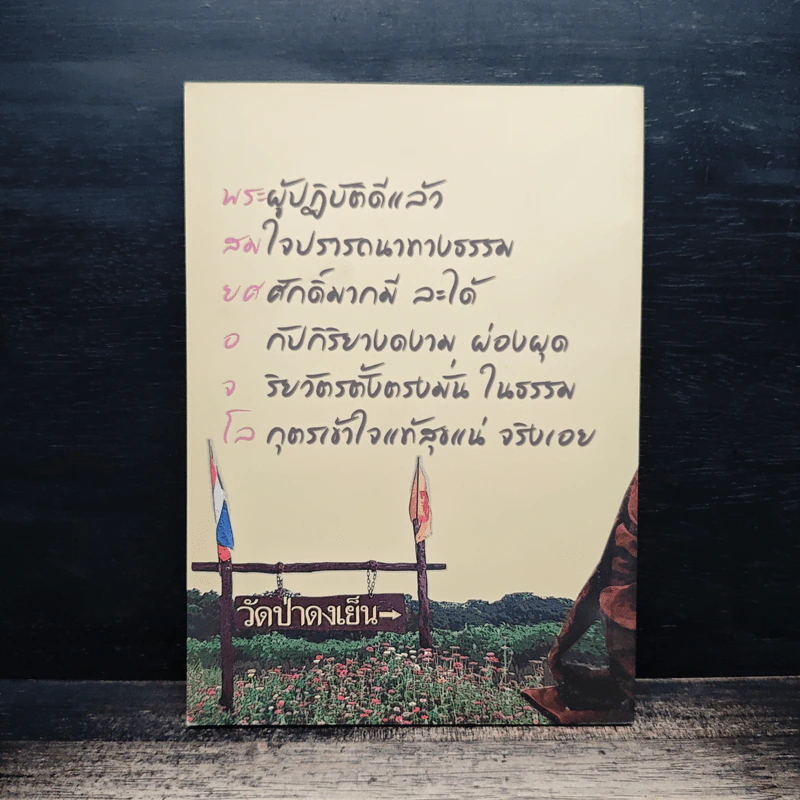 พระผู้ปฏิบัติดีแล้ว
สมใจปรารถนาทางธรรม
ยศศักดิ์มากมี ละได้
อ กัปกิริยางดงาม ผ่องผุด
จ ริยวัตรตั้งตรงมั่น ในธรรม
โล กุตรเข้าใจแท้สุขแน่ จริงเอย
วัดป่าดงเย็น→